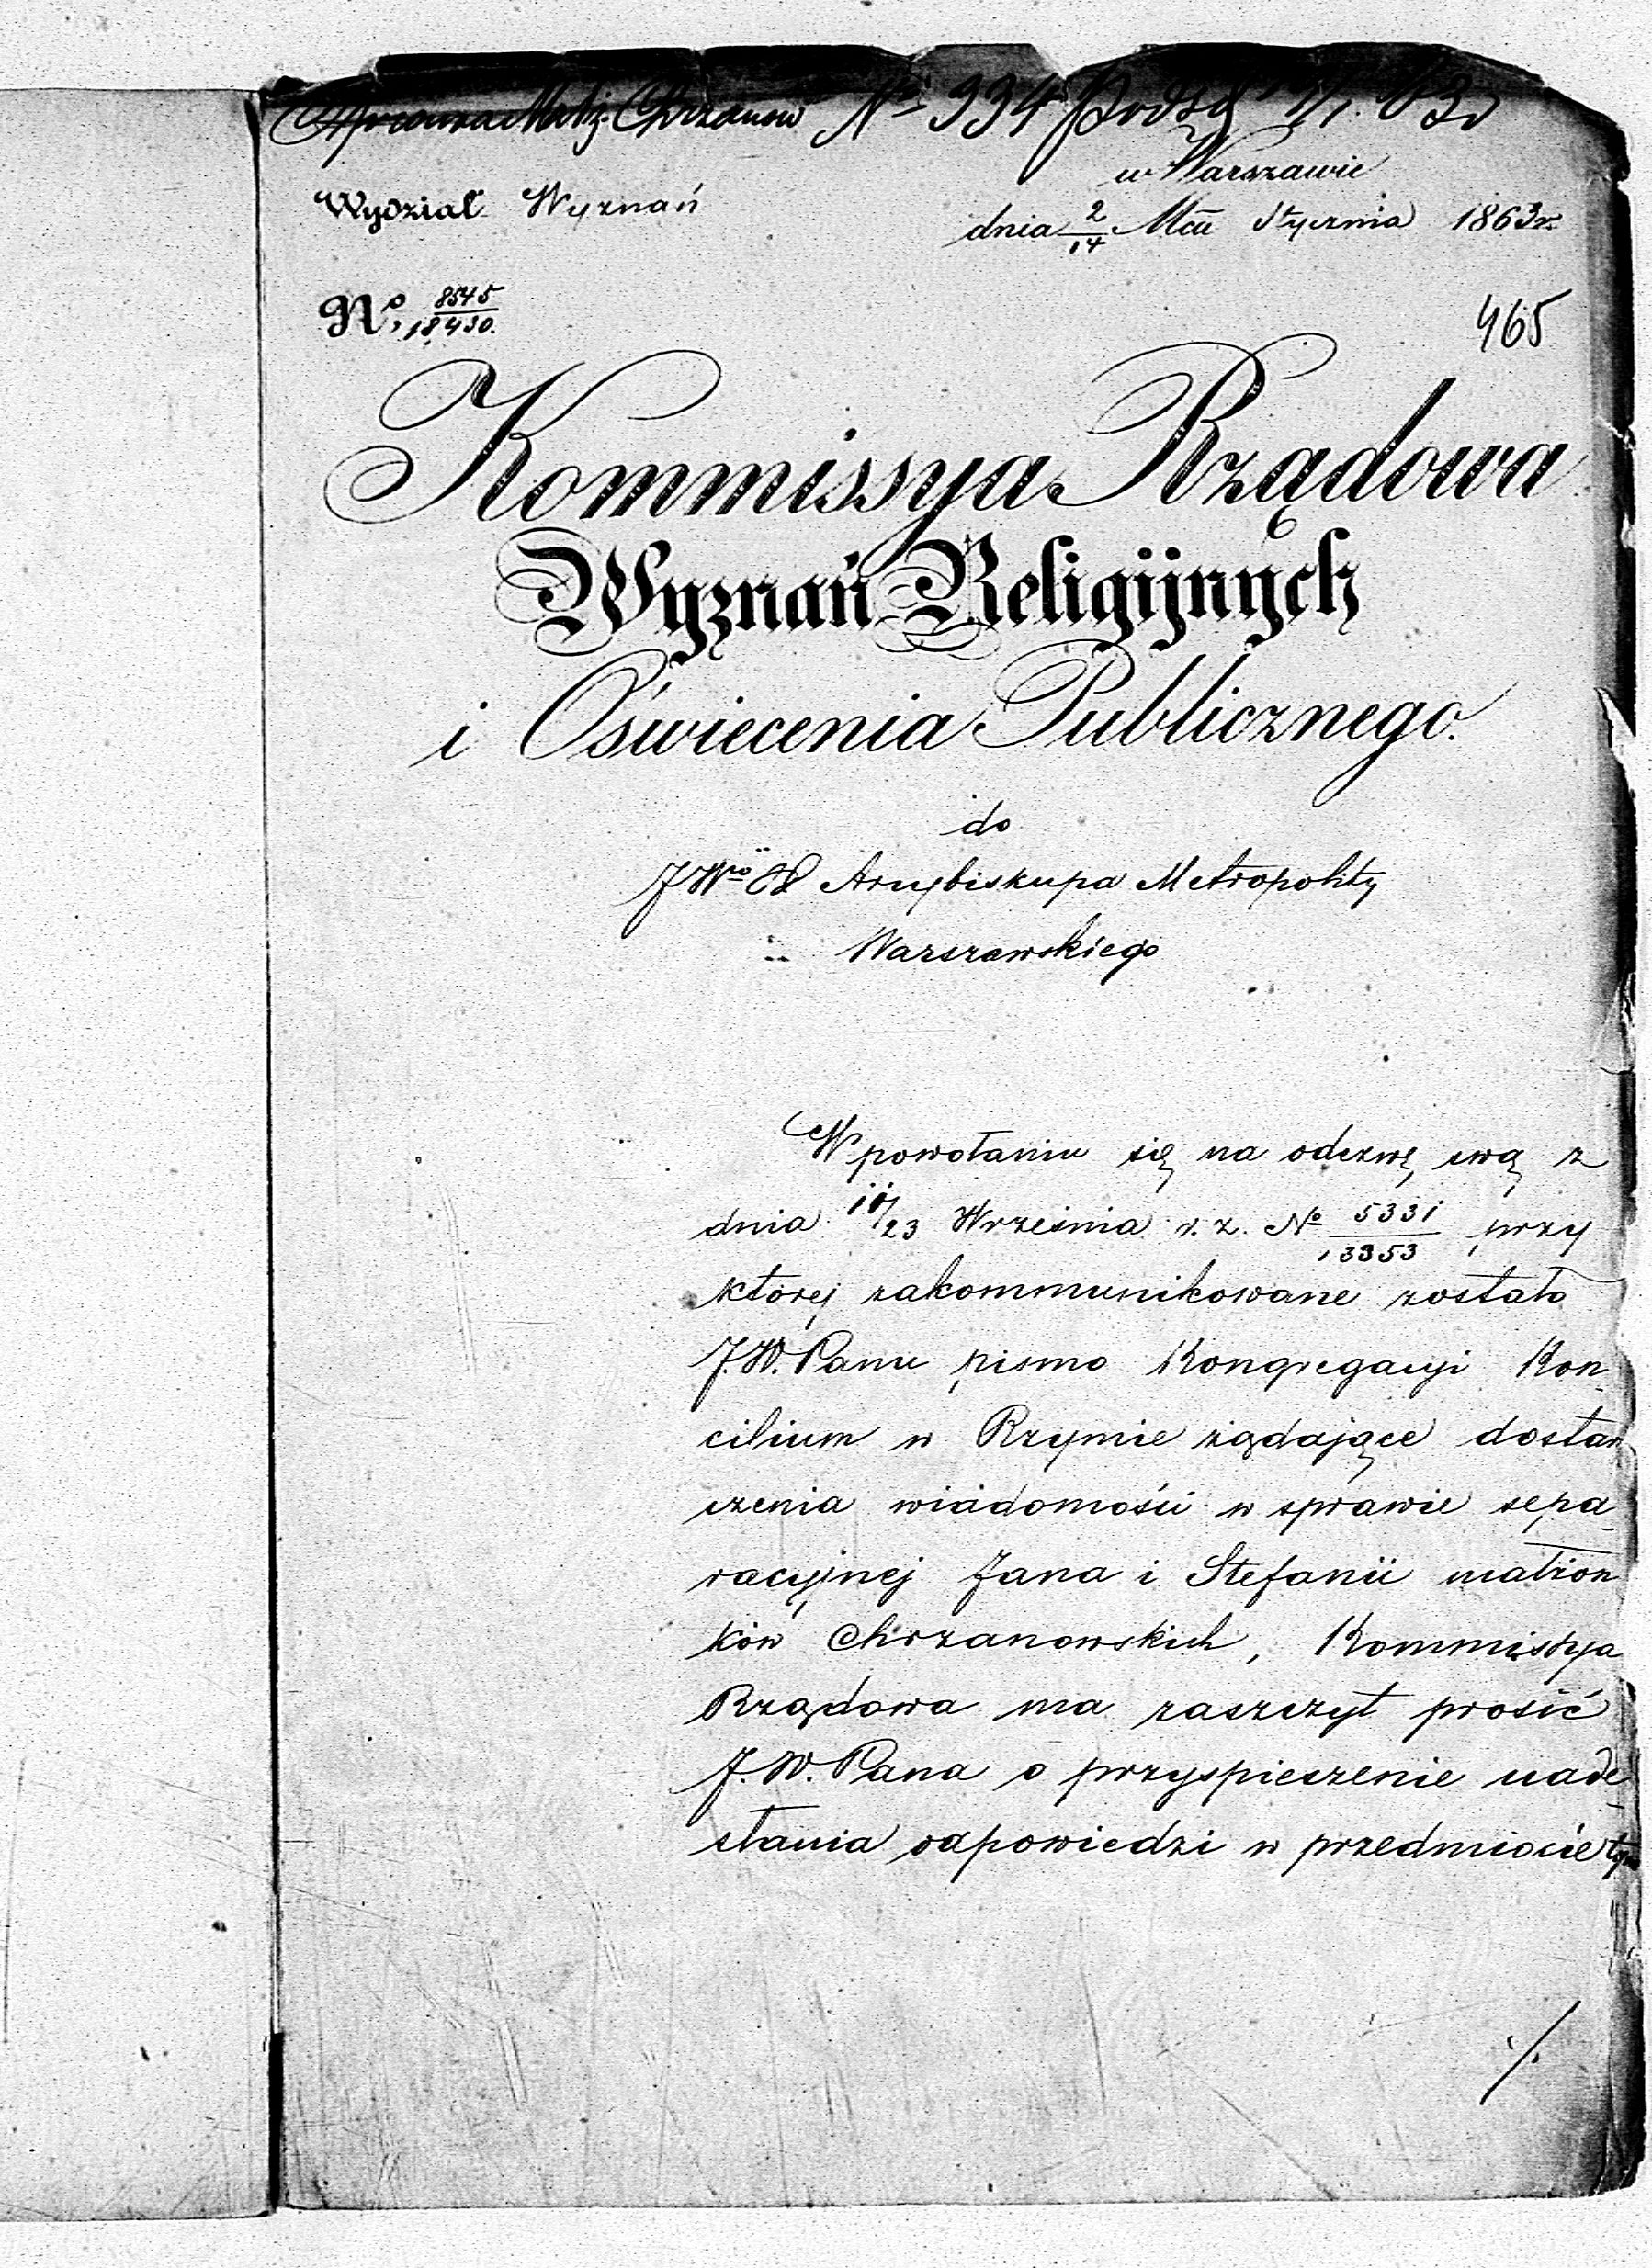 Chrzanow No 334
w Warszawie
Wydział Wyznań
dnia 2/14 Mca Stycznia 1863 r.
No. 8545/18430.
465
Kommissya Rządowa
Wyznań Religijnych
i Oświecenia Publicznego.
do
JWo Arcybiskupa Metropolity
Warszawskiego
W powołaniu się na odezwę swą z
dnia 11/23 Września r. z. No 5331/13353 przy
której zakommunikowane zostało
J.W. Panu pismo Kongregacyi Kon
cilium w Rzymie żądające dostar
czenia wiadomości w sprawie sepa
racyjnej Jana i Stefanii małżon
ków Chrzanowskich, Kommissya
Rządowa ma zaszczyt prosić
J.W. Pana o przyspieszenie nade
słania odpowiedzi w przedmiocie tym
./.